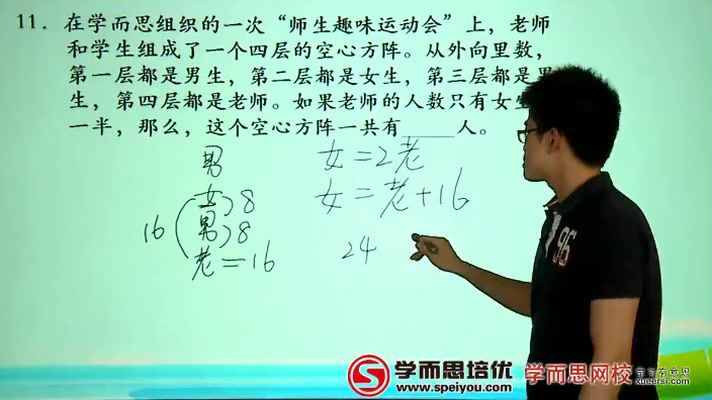 11．在学而思组织的一次“师生趣味运动会”上，老师
和学生组成了一个四层的空心方阵。从外向里数，
第一层都是男生，第二层都是女生，第三层都是男
生，第四层都是老师。如果老师的人数只有女生
一半，那么，这个空心方阵一共有____人。
男
女 8
16 男 8
老=16
女=2老
女=老+16
24
96
学而思培优
www.speiyou.com
学而思网校
xueersi.com